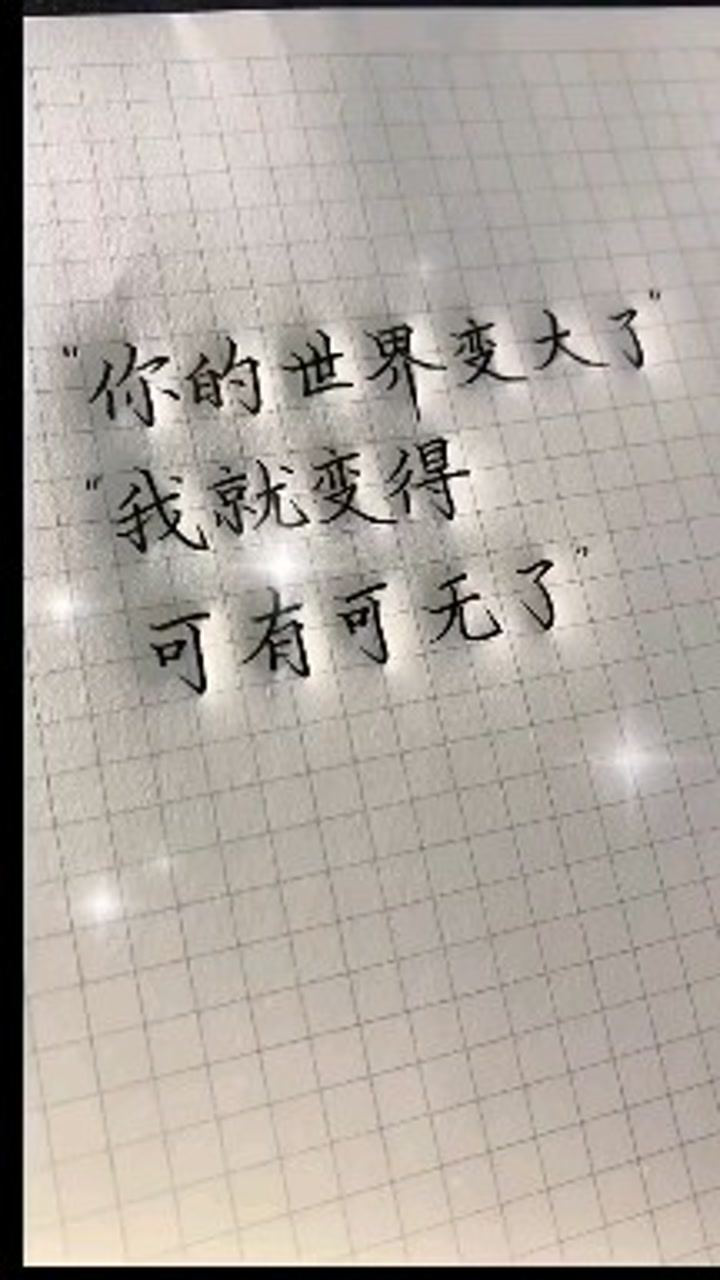 "你的世界变大了"
"我就变得
可有可无了"